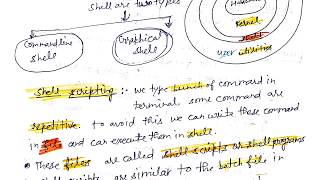 Shell are two types
Commandline
shell
Graphical
Shell
Kernel
shell
user utilities
Shell scripting :- we type bunch of command in
terminal some command are
repetitive. to avoid this we can write these command
in file and can execute them in shell.
• These files are called shell scripts or shell programs
are similar to the batch file in